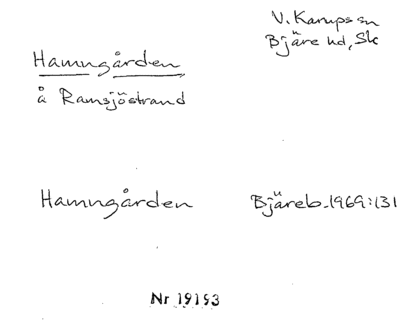 Hamngården
å Ramsjöstrand
V. Karups sn
Bjäre hd, Sk
Hamngården Bjäreb. 1969:131
Nr 19193